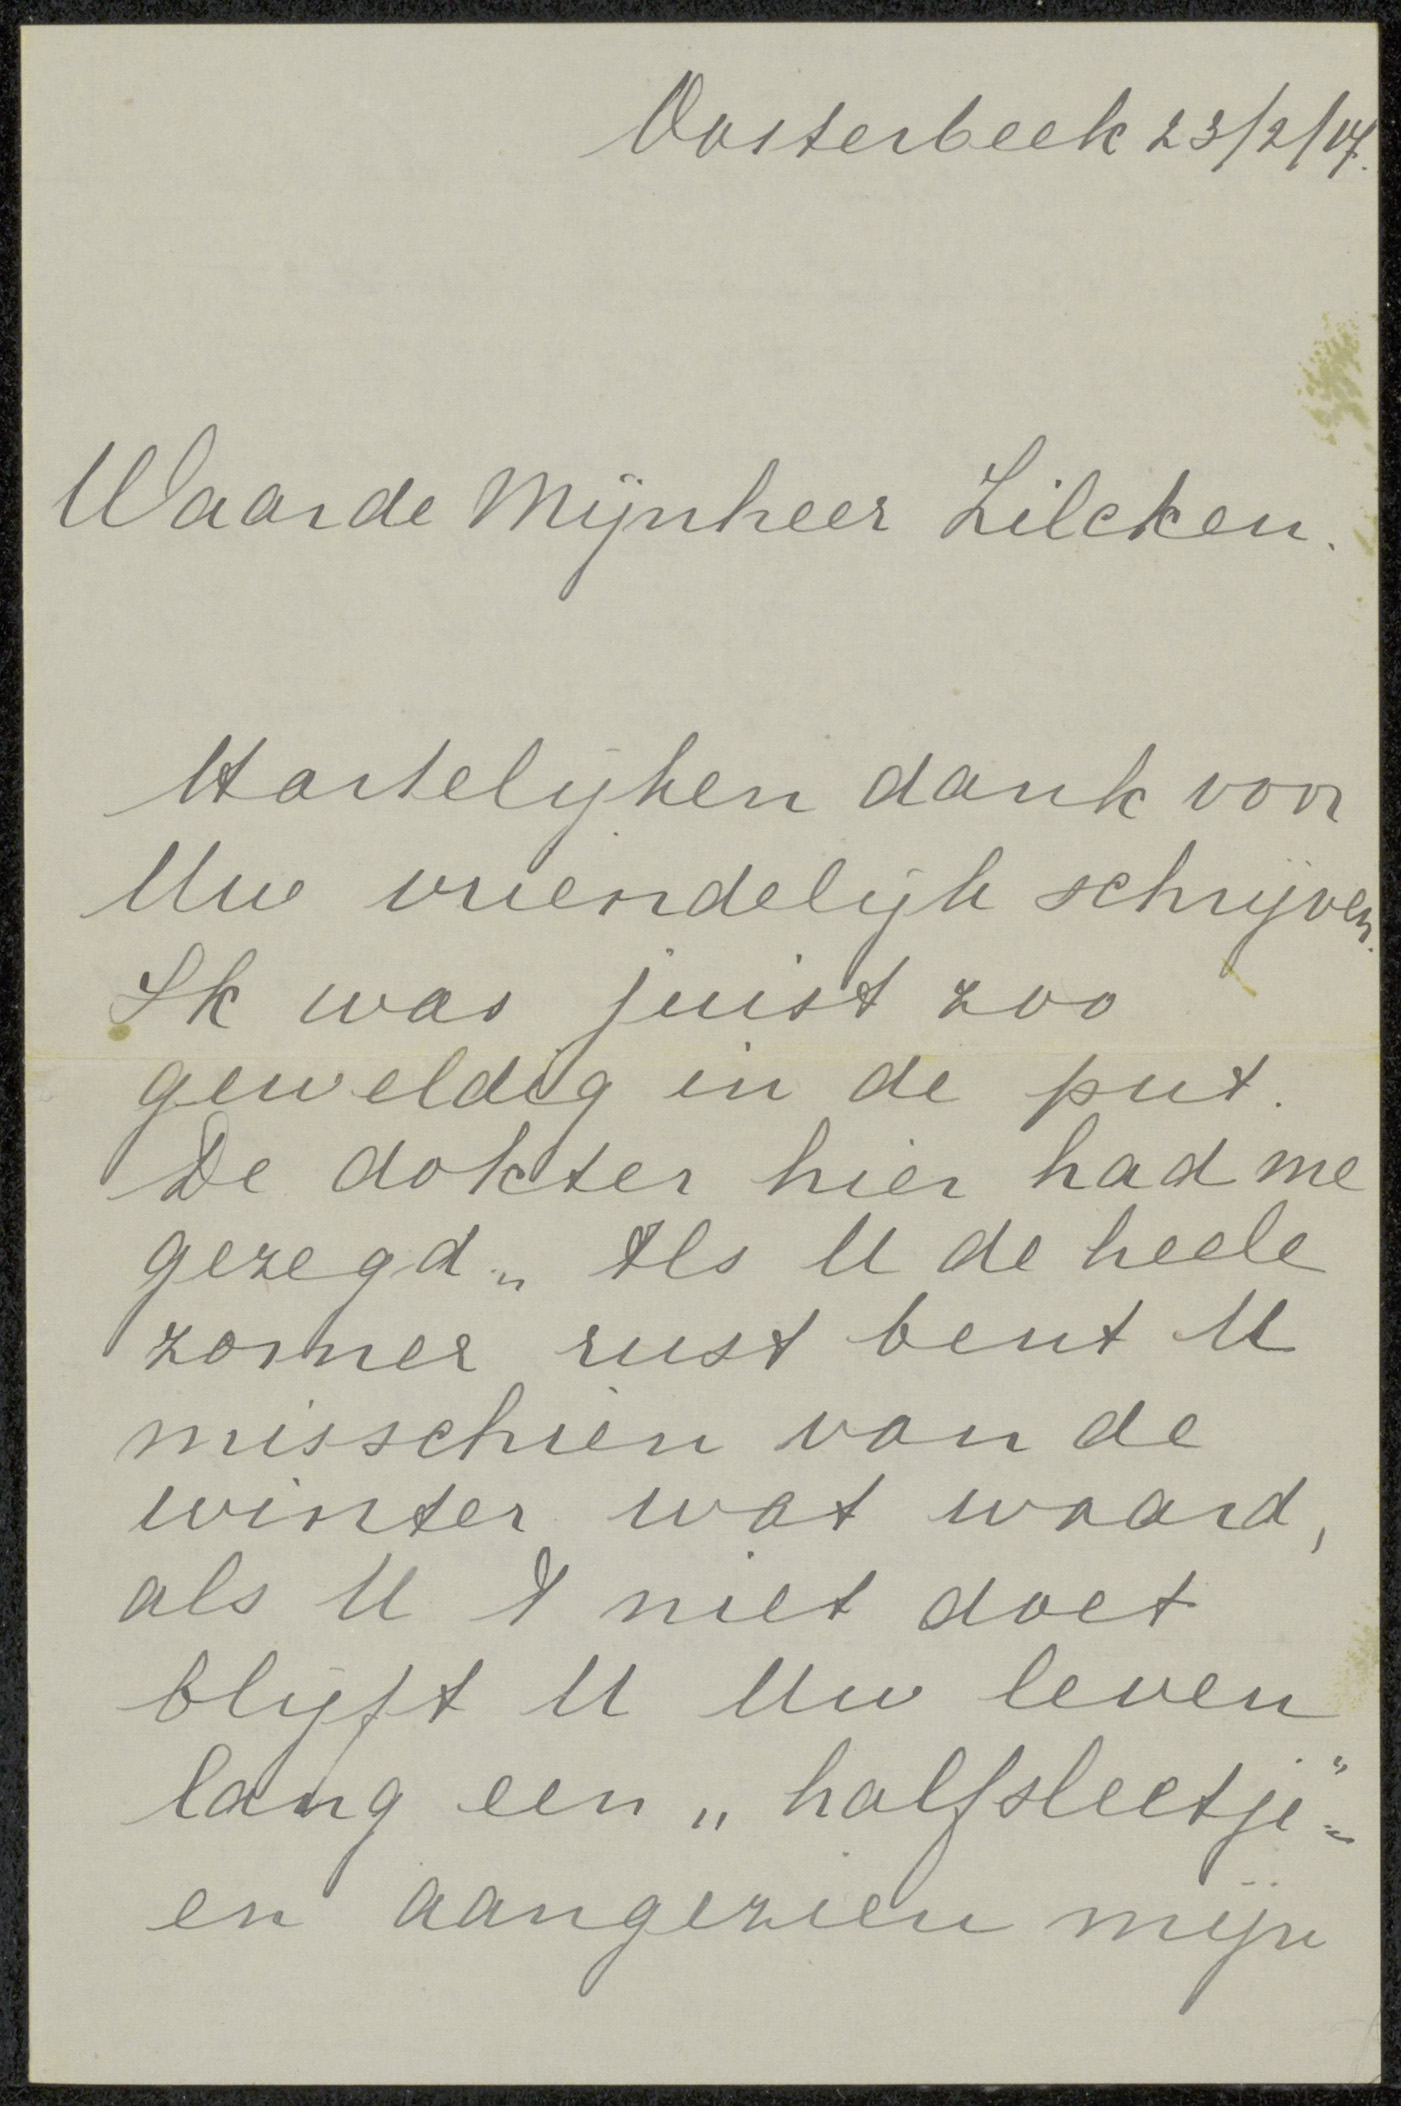 Oosterbeek 23/2/07.
Waarde Mijnheer Zilcken.
Hartelijken dank voor
Uw vriendelijk schrijven.
Ik was juist zoo
geweldig in de put.
De dokter hier had me
gezegd „ Als U de heele
zomer rust bent U
misschien van de
winter wat waard,
als U 't niet doet
blijft U Uw leven
lang een „ halfsleetje"
en aangezien mijn